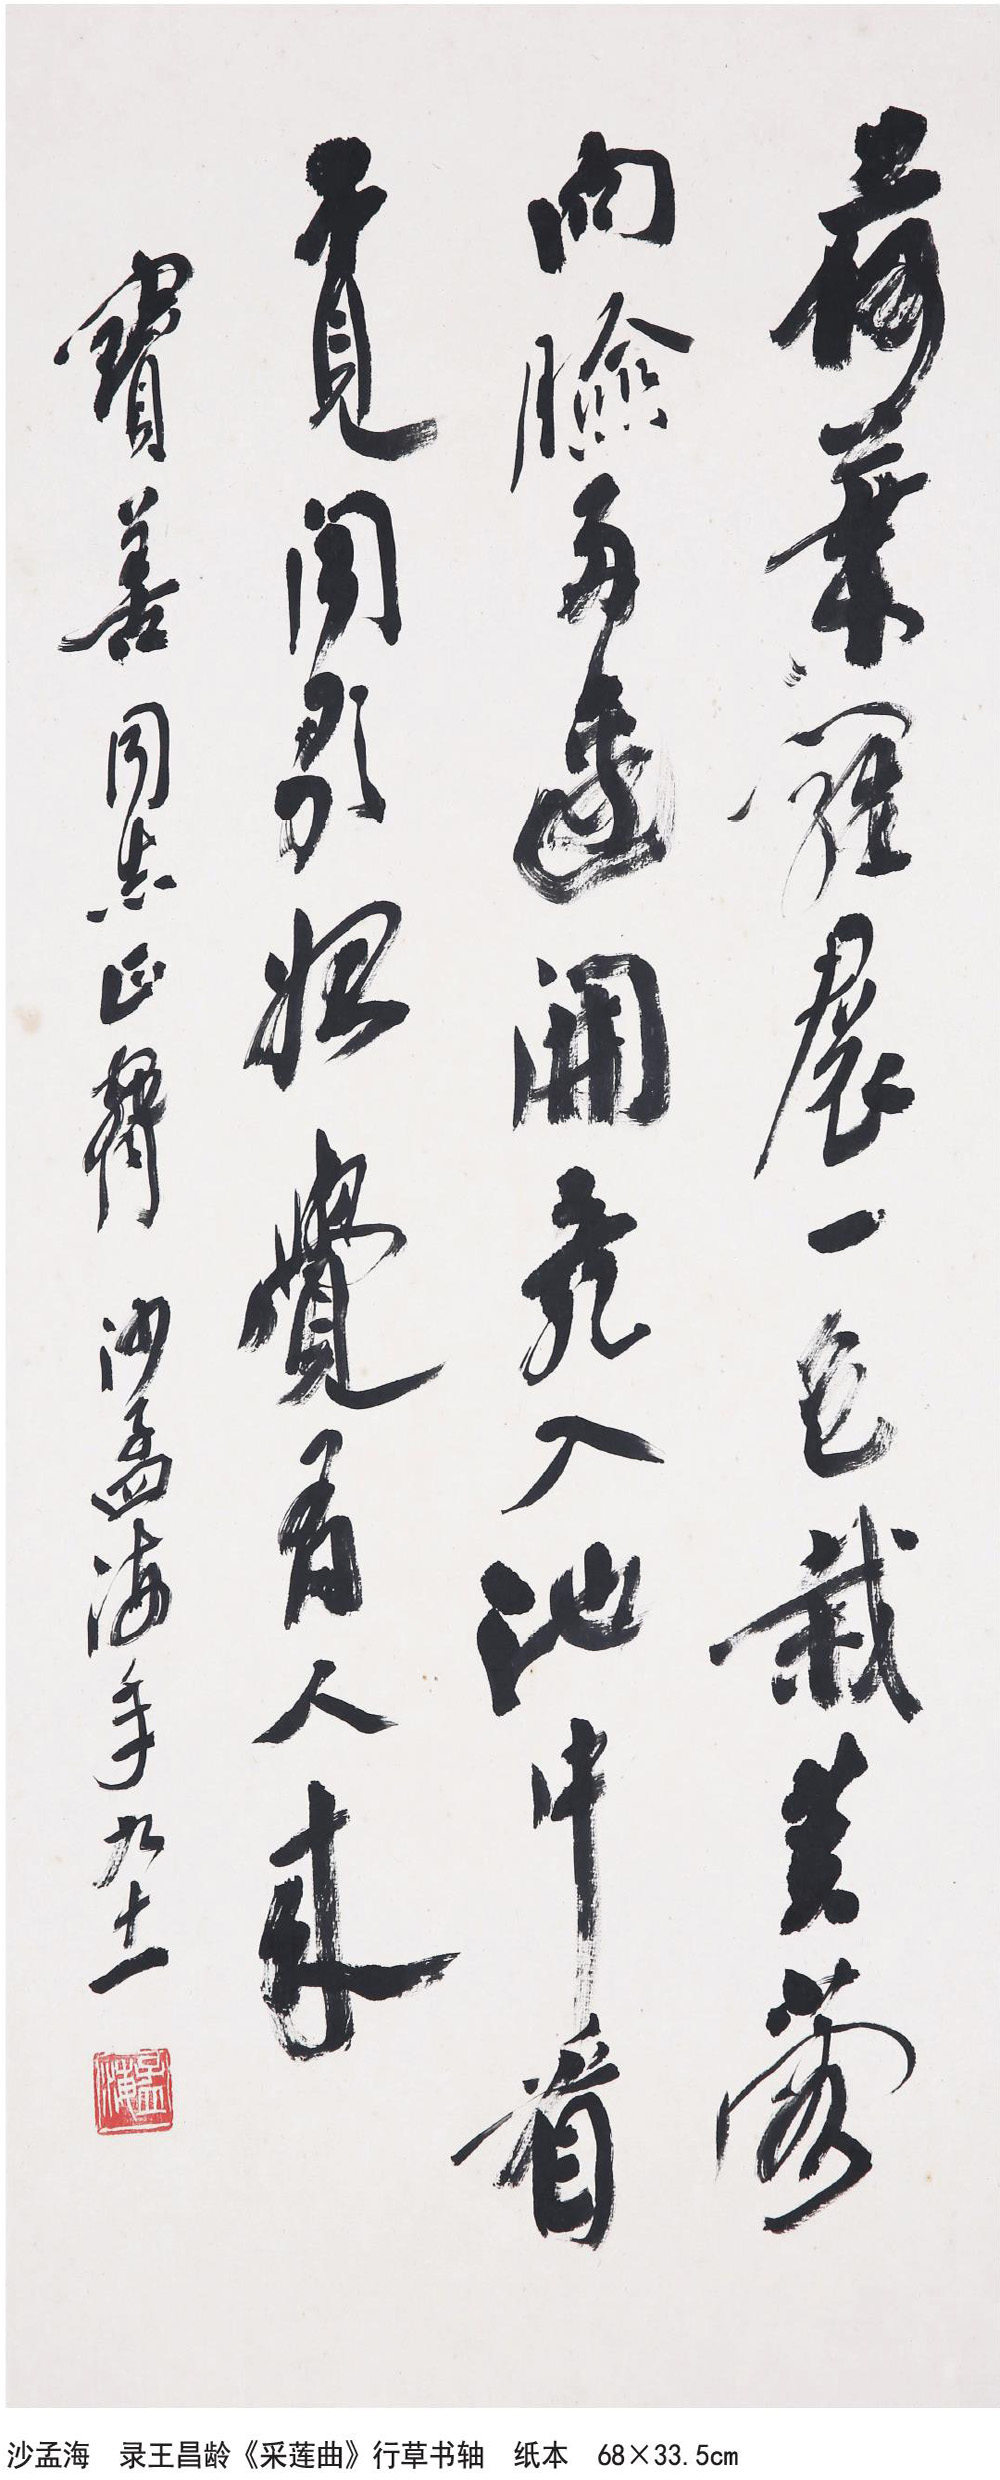 荷葉羅裠一色裁芙蓉
向臉兩邊開亂入池中看
不見聞歌始覺有人來
寶善同志正 沙孟海年九十一
孟海
沙孟海 录王昌龄《采莲曲》行草书轴 纸本 68×33.5cm